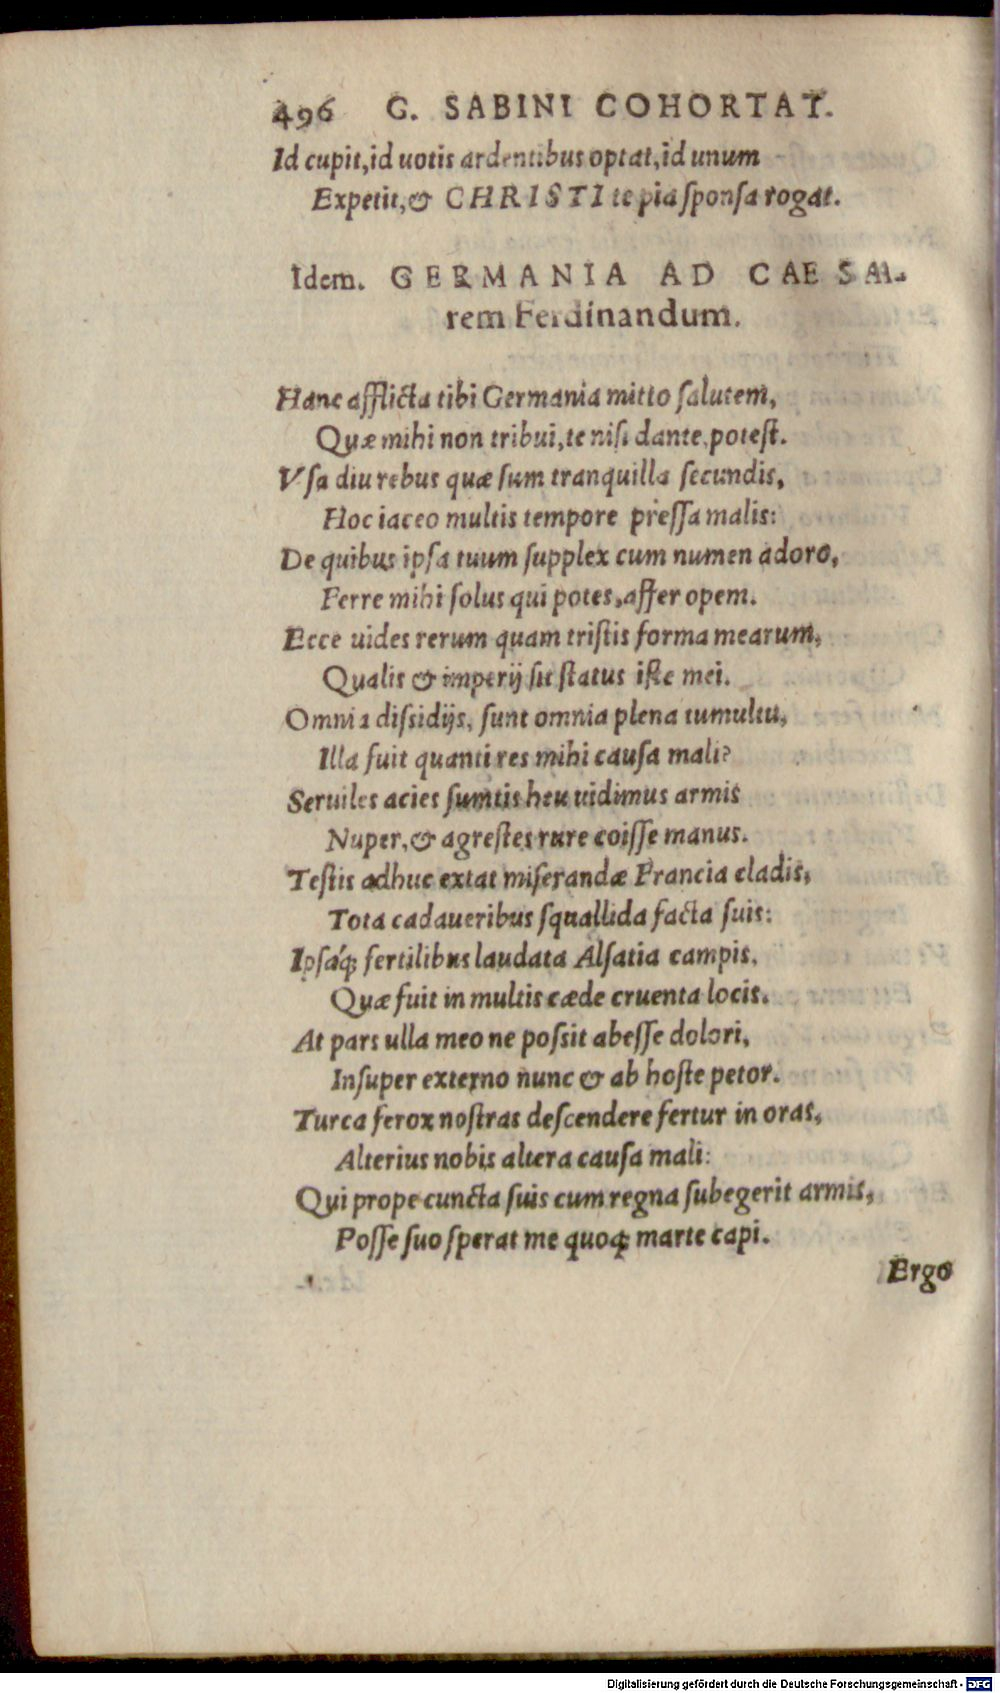 496 G. SABINI COHORTAT.
Id cupit, id uotis ardentibus optat, id unum
Expetit, & CHRISTI te pia ſponſa rogat.
Idem. GERMANIA AD CAESA-
rem Ferdinandum.
Hanc afflicta tibi Germania mitto ſalutem,
Quæ mihi non tribui, te niſi dante, poteſt.
Vſa diu rebus quæ ſum tranquilla ſecundis,
Hoc iaceo multis tempore preſſa malis:
De quibus ipſa tuum ſupplex cum numen adoro,
Ferre mihi ſolus qui potes, affer opem.
Ecce uides rerum quam triſtis forma mearum,
Qualis & imperij ſit ſtatus iſte mei.
Omnia diſsidijs, ſunt omnia plena tumultu,
Illa fuit quanti res mihi cauſa mali?
Seruiles acies ſumtis heu uidimus armis
Nuper, & agreſtes rure coiſſe manus.
Teſtis adhuc extat miſerandæ Francia cladis,
Tota cadaueribus ſquallida facta ſuis:
Ipſáq; fertilibus laudata Alſatia campis,
Quæ fuit in multis cæde cruenta locis.
At pars ulla meo ne poſsit abeſſe dolori,
Inſuper externo nunc & ab hoſte petor.
Turca ferox noſtras deſcendere fertur in oras,
Alterius nobis altera cauſa mali:
Qui prope cuncta ſuis cum regna ſubegerit armis,
Poſſe ſuo ſperat me quoq; marte capi.
Ergo
Digitalisierung gefördert durch die Deutsche Forschungsgemeinschaft - DFG